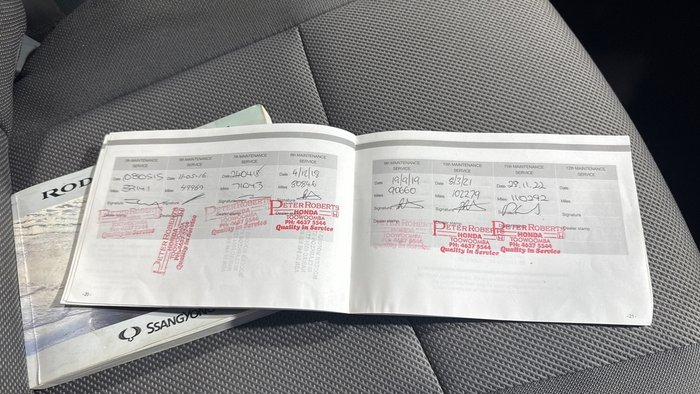 ROD
SSANGYONG
5TH MAINTENANCE SERVICE
Date 080515
Miles
Signature
6TH MAINTENANCE SERVICE
Date 11-05-16
Miles 49969
Signature
7TH MAINTENANCE SERVICE
Date 260418
Miles 71043
Signature
8TH MAINTENANCE SERVICE
Date 4/12/18
Miles 80846
Signature
PETER ROBERTS
HONDA
TOOWOOMBA
PH: 4637 5544
Quality in Service
-20-
9TH MAINTENANCE SERVICE
Date 19/9/19
Miles 90660
Signature
Dealer stamp
10TH MAINTENANCE SERVICE
Date 8/3/21
Miles 102279
Signature
PETER ROBERTS
HONDA
TOOWOOMBA
PH: 4637 5544
Quality in Service
11TH MAINTENANCE SERVICE
Date 28.11.22
Miles 110292
Signature
PETER ROBERTS
HONDA
TOOWOOMBA
PH: 4637 5544
Quality in Service
12TH MAINTENANCE SERVICE
Date
Miles
Signature
Dealer stamp
-21-